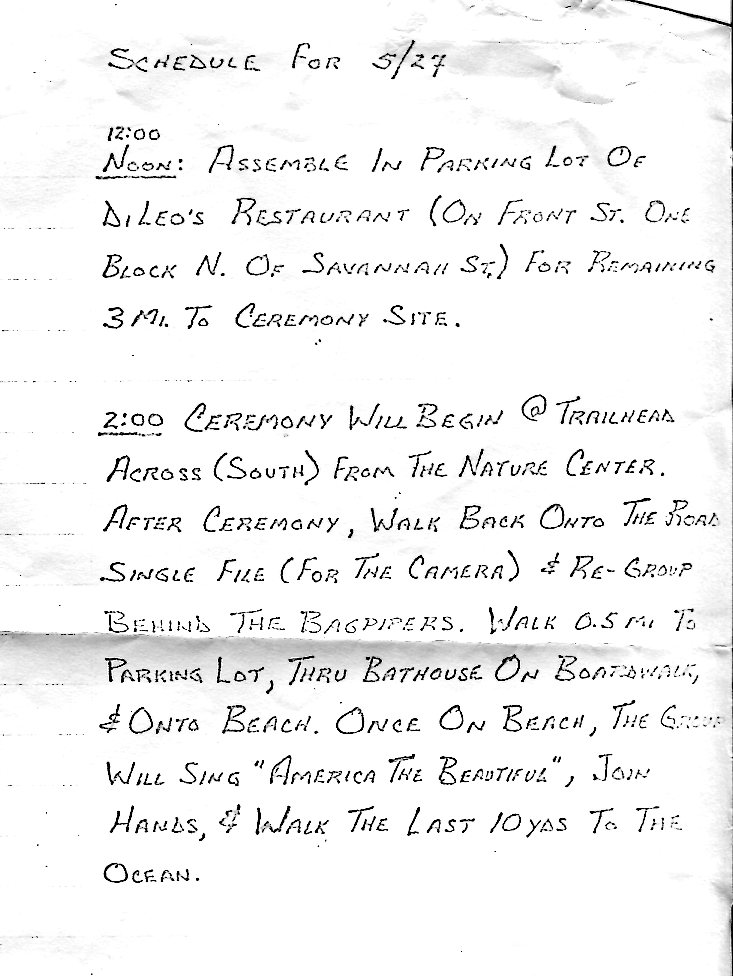 SCHEDULE FOR 5/27
12:00
NOON: ASSEMBLE IN PARKING LOT OF
DILEO'S RESTAURANT (ON FRONT ST. ONE
BLOCK N. OF SAVANNAH ST.) FOR REMAINING
3 MI. TO CEREMONY SITE.
2:00 CEREMONY WILL BEGIN @ TRAILHEAD
ACROSS (SOUTH) FROM THE NATURE CENTER.
AFTER CEREMONY, WALK BACK ONTO THE ROAD
SINGLE FILE (FOR THE CAMERA) & RE-GROUP
BEHIND THE BAGPIPERS. WALK 0.5 MI TO
PARKING LOT, THRU BATHOUSE ON BOARDWALK,
& ONTO BEACH. ONCE ON BEACH, THE GROUP
WILL SING "AMERICA THE BEAUTIFUL", JOIN
HANDS, & WALK THE LAST 10 YDS TO THE
OCEAN.